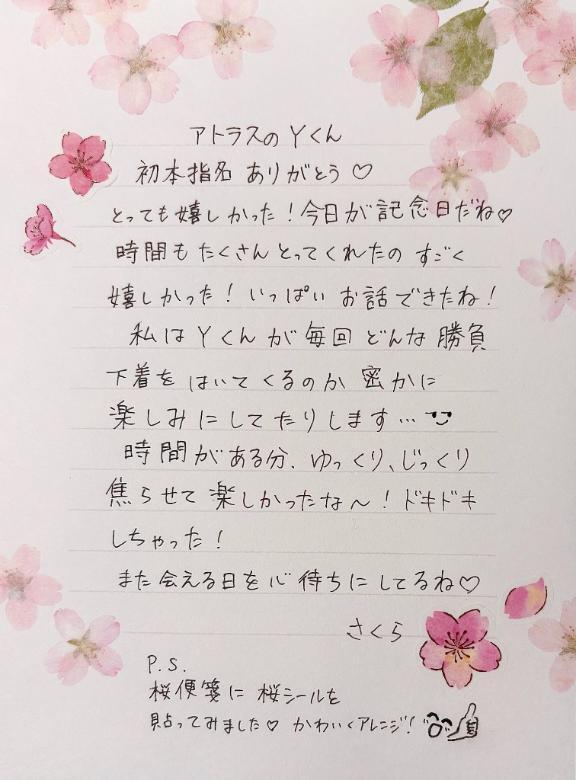 アトラスのYくん
初本指名ありがとう♡
とっても嬉しかった！今日が記念日だね♡
時間もたくさんとってくれたの すごく
嬉しかった！いっぱいお話できたね！
私はYくんが毎回どんな勝負
下着をはいてくるのか密かに
楽しみにしてたりします…
時間がある分、ゆっくり、じっくり
焦らせて楽しかったな〜！ドキドキ
しちゃった！
また会える日を心待ちにしてるね♡
さくら
P.S.
桜便箋に桜シールを
貼ってみました♡ かわいくアレンジ！